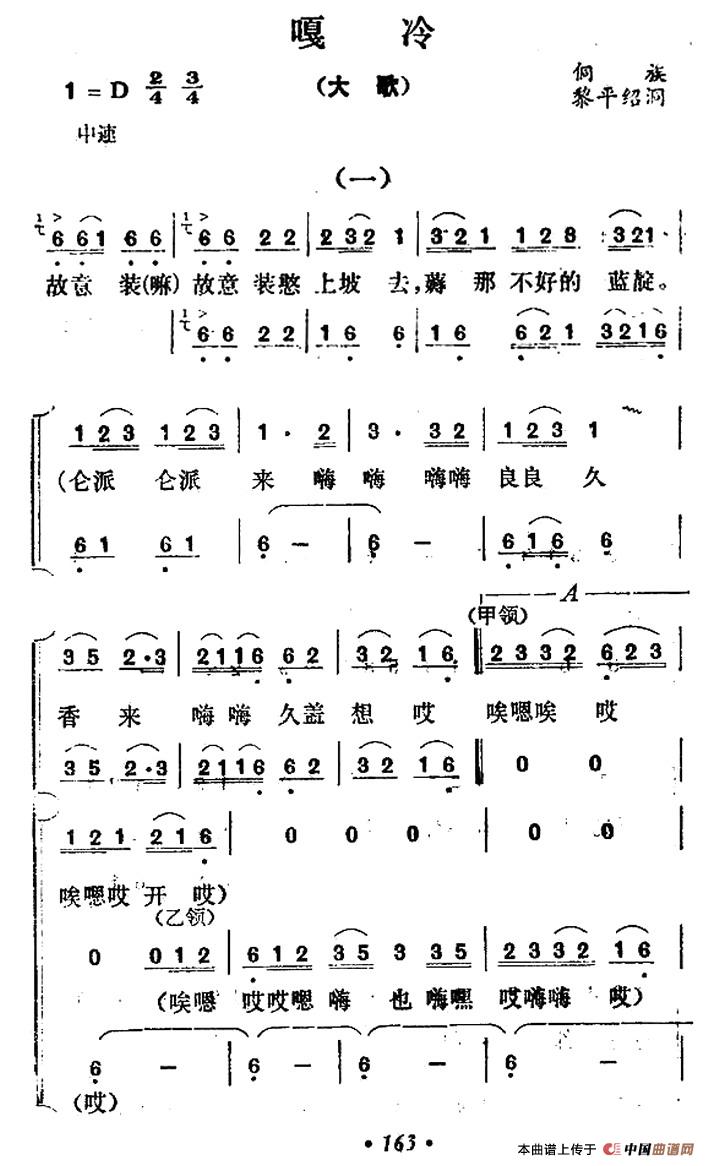 嘎 冷
1 = D 2/4 3/4 (大 歌) 侗 族
黎平绍洞
中速
(一)
6 6 1 6 6 | 6 6 2 2 | 2 3 2 1 | 3 2 1 1 2 8 3 2 1 |
故意 装(嘛) 故意 装憨 上坡 去,薅 那 不好的 蓝靛。
6 6 2 2 | 1 6 6 | 1 6 6 2 1 3 2 1 6 |
1 2 3 1 2 3 | 1 · 2 | 3 · 3 2 | 1 2 3 1 |
(仑派 仑派 来 嗨 嗨 嗨嗨 良良 久
6 1 6 1 | 6 – | 6 – | 6 1 6 6 |
A
(甲领)
3 5 2 · 3 | 2 1 1 6 6 2 | 3 2 1 6 | 2 3 3 2 6 2 3 |
香 来 嗨 嗨 久盖 想 哎 唉嗯唉 哎
3 5 2 · 3 | 2 1 1 6 6 2 | 3 2 1 6 | 0 0 |
1 2 1 2 1 6 | 0 0 0 | 0 0 |
唉嗯哎 开 哎)
(乙领)
0 0 1 2 | 6 1 2 3 5 3 3 5 | 2 3 3 2 1 6 |
(唉嗯 哎哎嗯 嗨 也 嗨嘿 哎嗨嗨 哎)
6 – | 6 – 6 – | 6 – |
(哎)
· 163 ·
本曲谱上传于 中国曲谱网